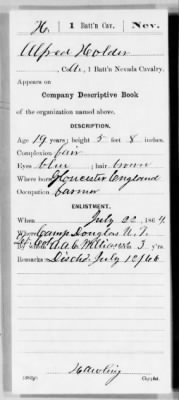 H | 1 Batt'n Cav. | Nev.
Alfred Holder
, Co. H, 1 Batt'n Nevada Cavalry.
Appears on
Company Descriptive Book
of the organization named above.
DESCRIPTION.
Age 19 years; height 5 feet 8 inches.
Complexion fair
Eyes blue; hair brown
Where born Gloucester England
Occupation farmer
ENLISTMENT.
When July 22, 1864.
Where Camp Douglas U.T.
By whom Williams; term 3 y'rs.
Remarks: Disch. July 12/66
Copyist.